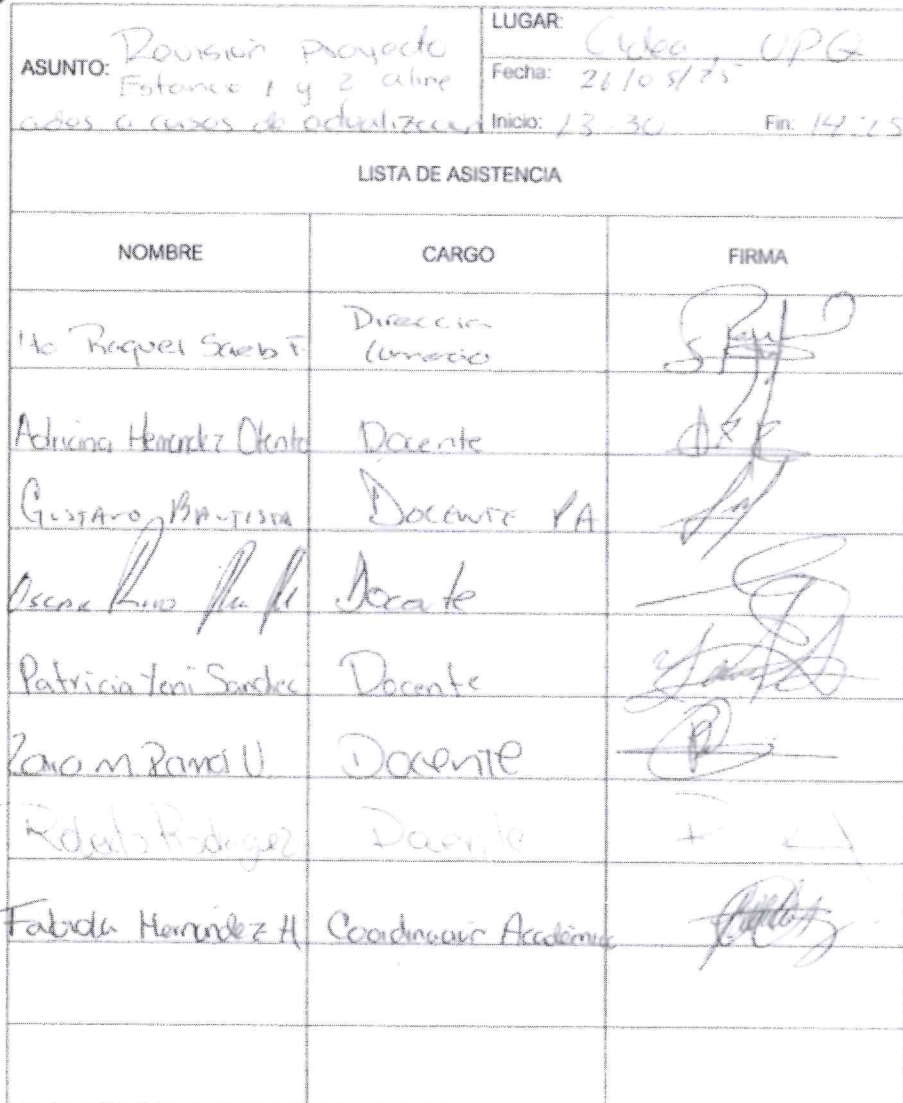 ASUNTO: Revisión proyecto
Estancia 1 y 2 aline
ados a cursos de actualización
LUGAR: UPQ
Fecha: 26/05/25
Inicio: 13:30 Fin: 14:25
LISTA DE ASISTENCIA
NOMBRE CARGO FIRMA
Raquel Dirección
Comercio
Adriana Hernández Docente
GUSTAVO BAUTISTA DOCENTE PA
Oscar Docente
Patricia Yeni Sanchez Docente
M Docente
Roberto Rodriguez Docente
Fabiola Hernández H Coordinación Académica